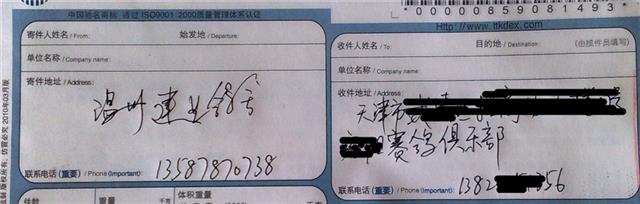 中国驰名商标 通过 ISO9001:2000质量管理体系认证
寄件人姓名/From:
始发地/Departure:
单位名称/Company name:
寄件地址/Address:
温州 建业鸽舍
联系电话 (重要) / Phone (Important):
13587870738
件数
体积重量
千克
2010年03月版
仿冒必究
000008590814 93
Http://www.ttkdex.com
收件人姓名/To:
目的地/Destination:
(由揽件员填写)
单位名称/Company name:
收件地址/Address:
天津市
赛鸽俱乐部
联系电话 (重要) / Phone (Important):
1382 356